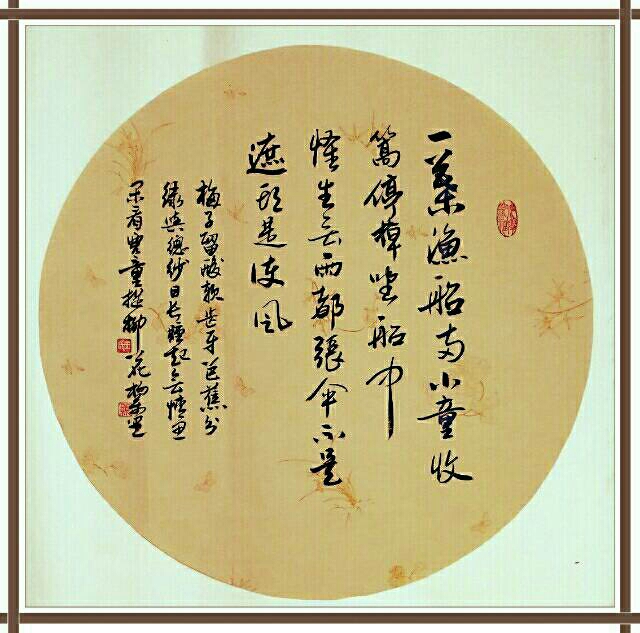 一葉漁船兩小童收
篙停棹坐船中
怪生无雨都張傘不是
遮頭是使風
梅子留酸軟齒牙芭蕉分
綠與窗紗日長睡起无情思
閑看兒童捉柳花